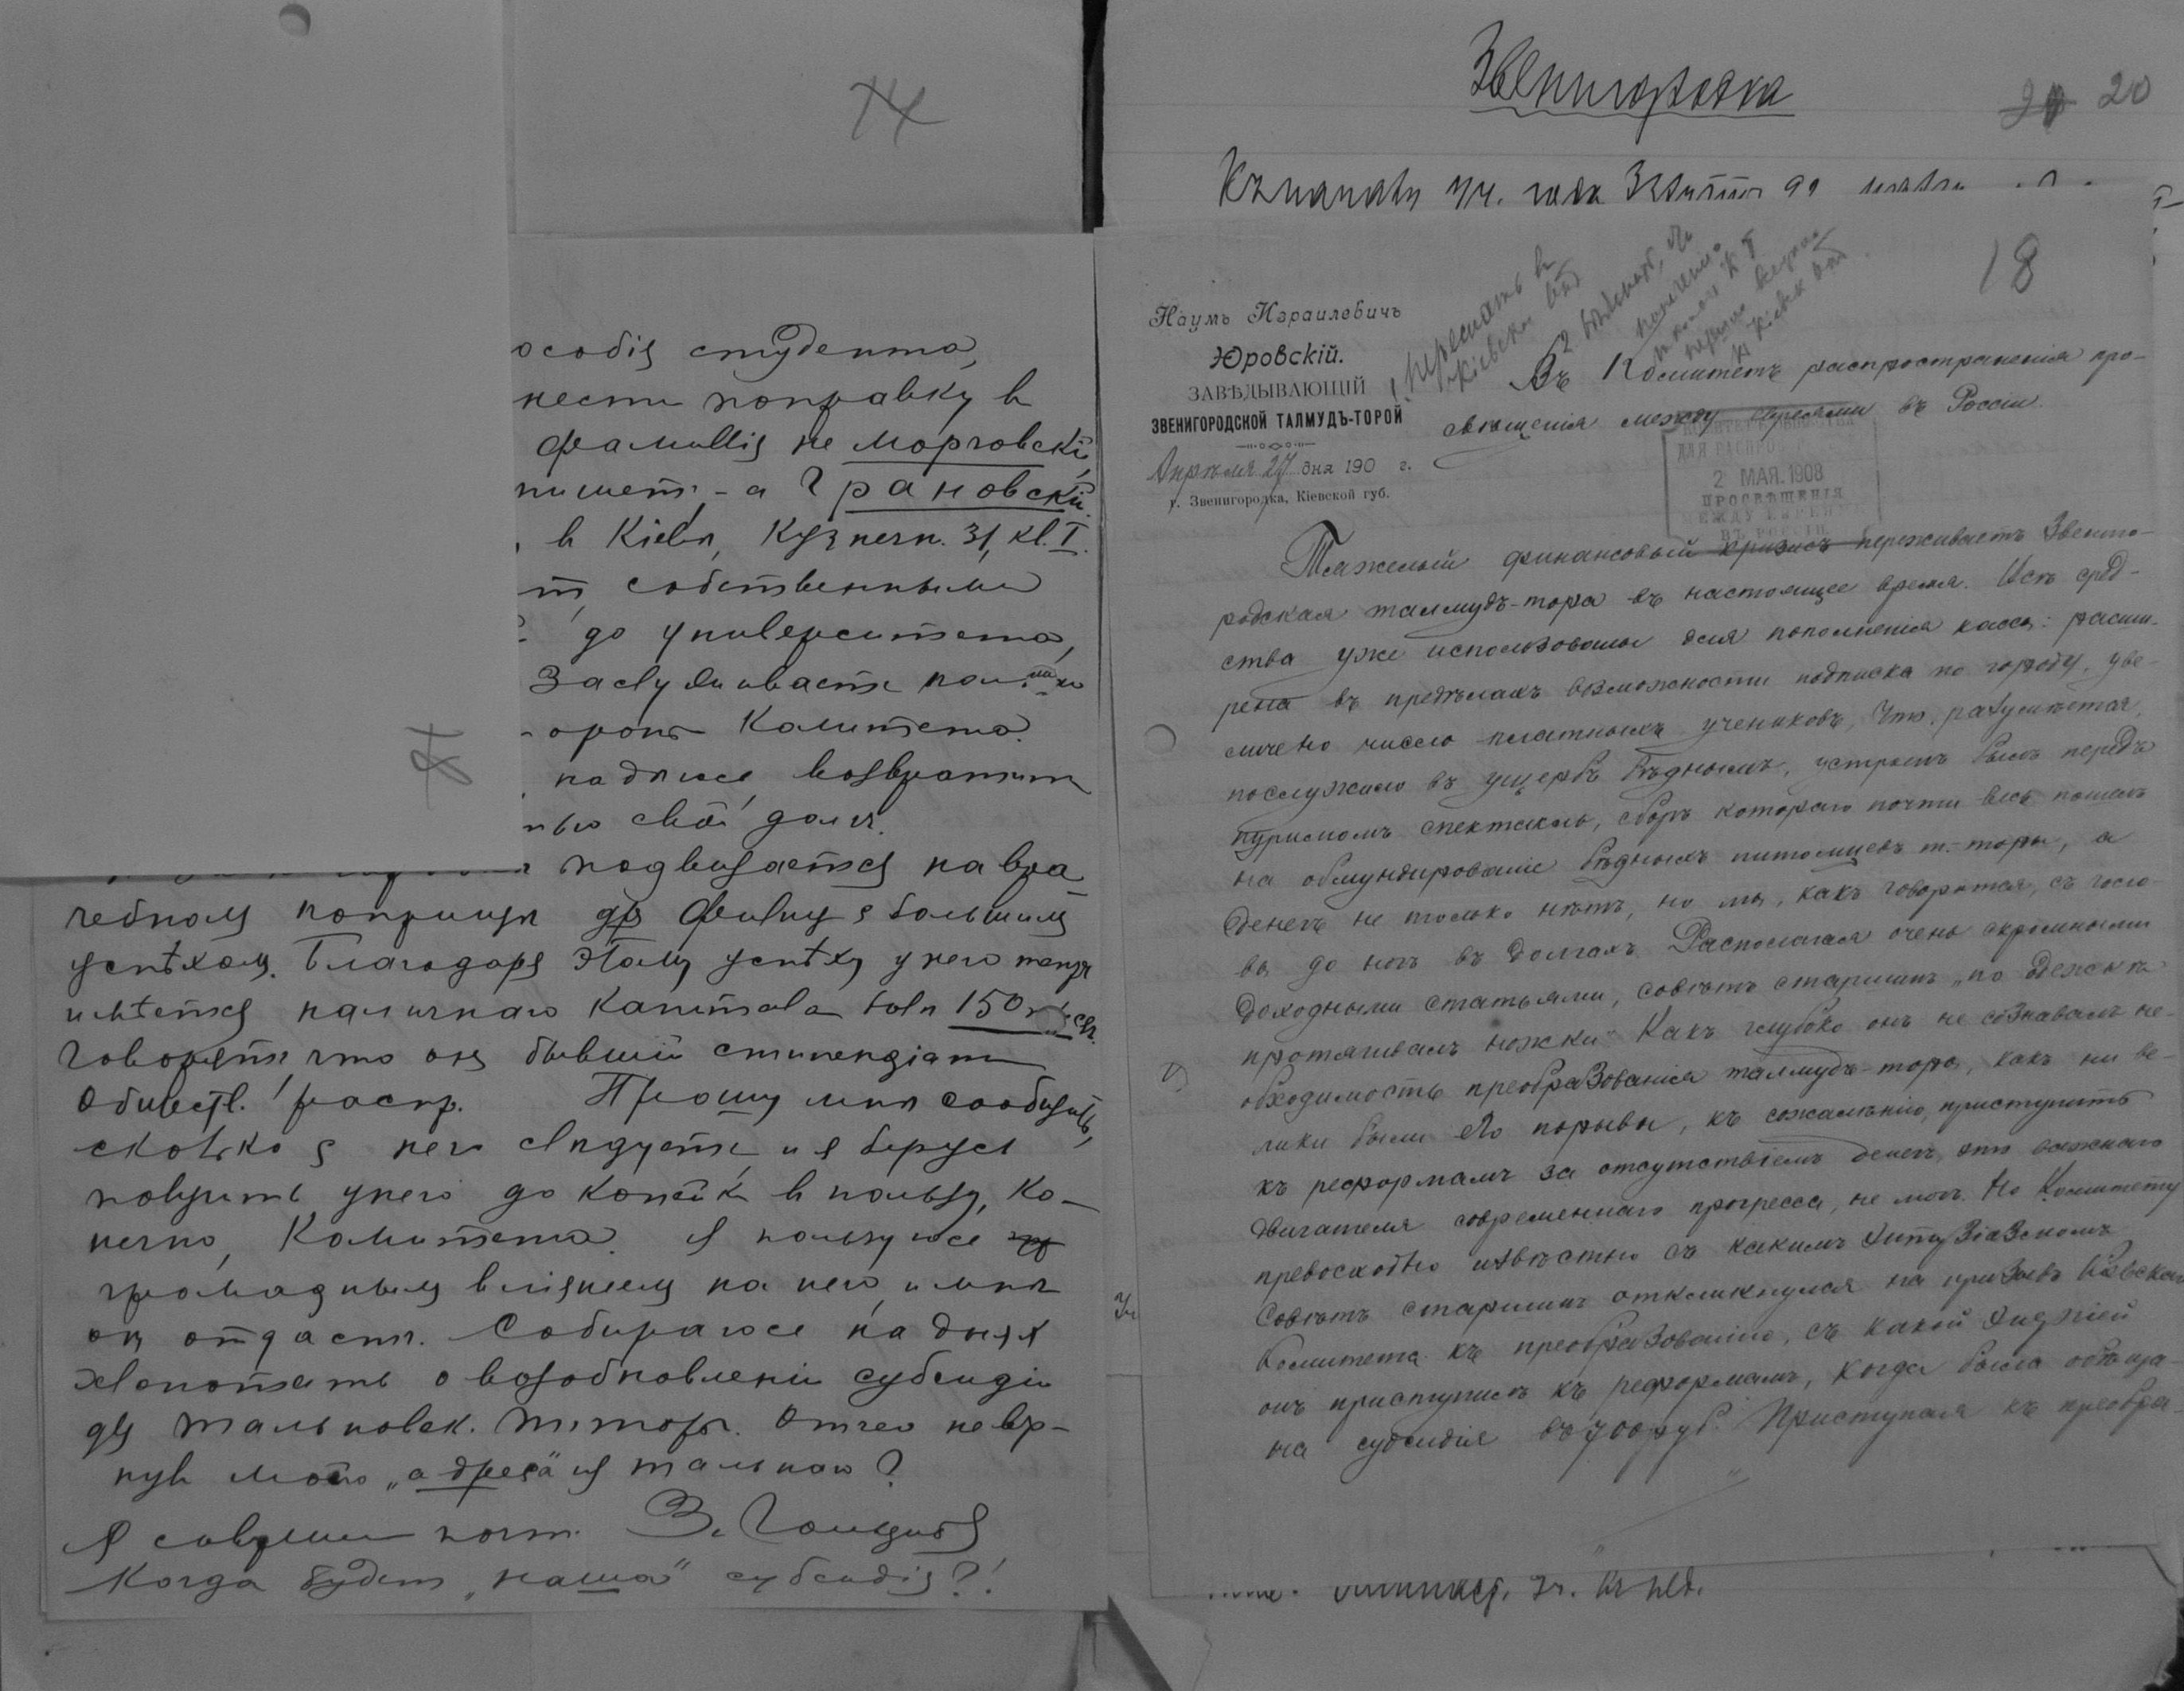 особія студента,
нести поправку в
фамиллія не Морговскій,
пишетъ, - а Грановскій.
в Кіевѣ, Кузнечн. 31, кв. I.
собственными
до университета,
Заслуживаетъ
Комитета.
надѣюсь возвратитъ
свой долгъ.
подвизается на вра-
чебномъ поприщѣ
съ большимъ
успѣхомъ. Благодаря этому успѣху у него теперь
имѣется наличнаго капитала болѣе 150
Говорятъ, что онъ бывшій стипендіатъ
Обществ. распр. Прошу мнѣ сообщить,
сколько с него слѣдуетъ, и я берусь
получить у него до копѣйки в пользу, ко-
нечно, Комитета. Я пользуюсь
громаднымъ вліяніемъ на него, и мнѣ
он отдастъ. Собираюсь на дняхъ
хлопотать о возобновленіи субсидіи
для Тальновск. т.-торы. Отчего не вер-
нули мой „адресъ" из Тальнаго?
Я с соверш. почт.
Когда будетъ „наша" субсидія?!
14
Звенигородка
20
Къ началу уч. года
18
Наумъ Израилевичъ
Юровскій.
ЗАВѢДЫВАЮЩІЙ
ЗВЕНИГОРОДСКОЙ ТАЛМУДЪ-ТОРОЙ
Апрѣля 27 дня 190 г.
г. Звенигородка, Кіевской губ.
Въ Комитетъ распространенія про-
свѣщенія между евреями въ Россіи.
ДЛЯ РАСПРО
2 МАЯ. 1908
ПРОСВѢЩЕНІЯ
МЕЖДУ ЕВРЕЯМИ
ВЪ РОССІИ
Тяжелый финансовый кризисъ переживаетъ Звениго-
родская талмудъ-тора въ настоящее время. Всѣ сред-
ства уже использованы для пополненія кассы: расши-
рена въ предѣлахъ возможности подписка по городу, уве-
личено число платныхъ учениковъ, что, разумѣется,
послужило въ ущербъ бѣднымъ, устроенъ былъ передъ
пуримомъ спектакль, сборъ котораго почти весь пошелъ
на обмундированіе бѣдныхъ питомцевъ т.-торы, а
денегъ не только нѣтъ, но мы, какъ говорится, съ голо-
вы до ногъ въ долгахъ. Располагая очень скромными
доходными статьями, совѣтъ старшинъ „по одежкѣ
протягивалъ ножки". Какъ глубоко онъ не сознавалъ не-
обходимость преобразованія талмудъ-торы, какъ ни ве-
лики были его порывы, къ сожалѣнію, приступить
къ реформамъ за отсутствіемъ денегъ, этого важнаго
двигателя современнаго прогресса, не могъ. Но Комитету
превосходно извѣстно съ какимъ энтузіазмомъ
Совѣтъ старшинъ откликнулся на призывъ Кіевскаго
Комитета къ преобразованію, съ какой энергіей
онъ приступилъ къ реформамъ, когда была обѣща-
на субсидія въ 700 руб. Приступая къ преобра-